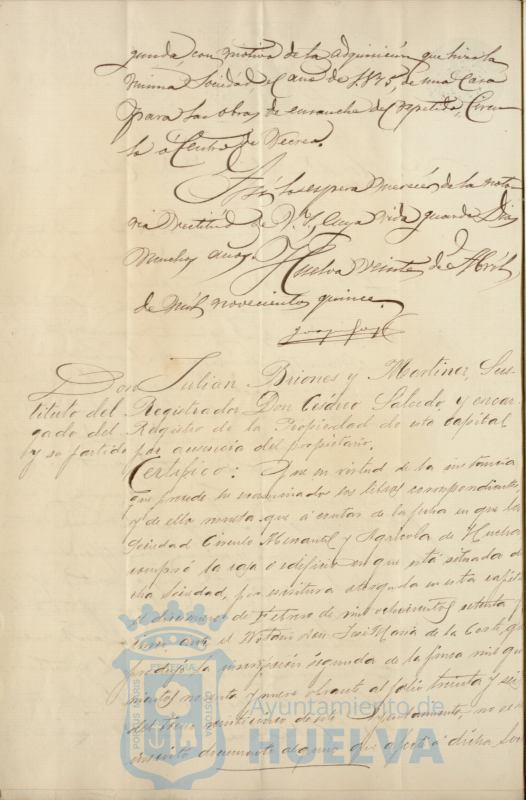 gunda con motivo de la adquisición que hizo la
misma Sociedad el año de 1.875, de una Casa
para las obras de ensanche del repetido, Círcu-
lo ó Centro de Recreo.
Así lo espera merecer de la noto-
ria rectitud de V. S. cuya vida guarde Dios
muchos años. Huelva veinte de Abril
de mil novecientos quince.
Don Julian Briones y Martinez, Sus-
tituto del Registrador Don Cesáreo Salcedo, y encar-
gado del Registro de la Propiedad de esta capital
y su partido por ausencia del propietario.
Certifico: Que en virtud de la instancia
que precede he examinado los libros correspondientes
y de ellos resulta que á contar de la fecha en que la
Sociedad Círculo Mercantil y Agrícola de Huelva
compró la casa ó edificio en que está situada di-
cha Sociedad, por escritura otorgada en esta capital
el de Febrero de mil ochocientos setenta y
ante el Notario Don José María de la Corte, que
produjo la inscripción segunda de la finca mil qui-
nientos noventa y nueve obrante al folio treinta y seis
del tomo veinticinco de este Ayuntamiento, no se
inscrito documento alguno que afecte á dicha Soci
PORTUS MARIS ET TERRAE CUSTODIA
Ayuntamiento de
HUELVA